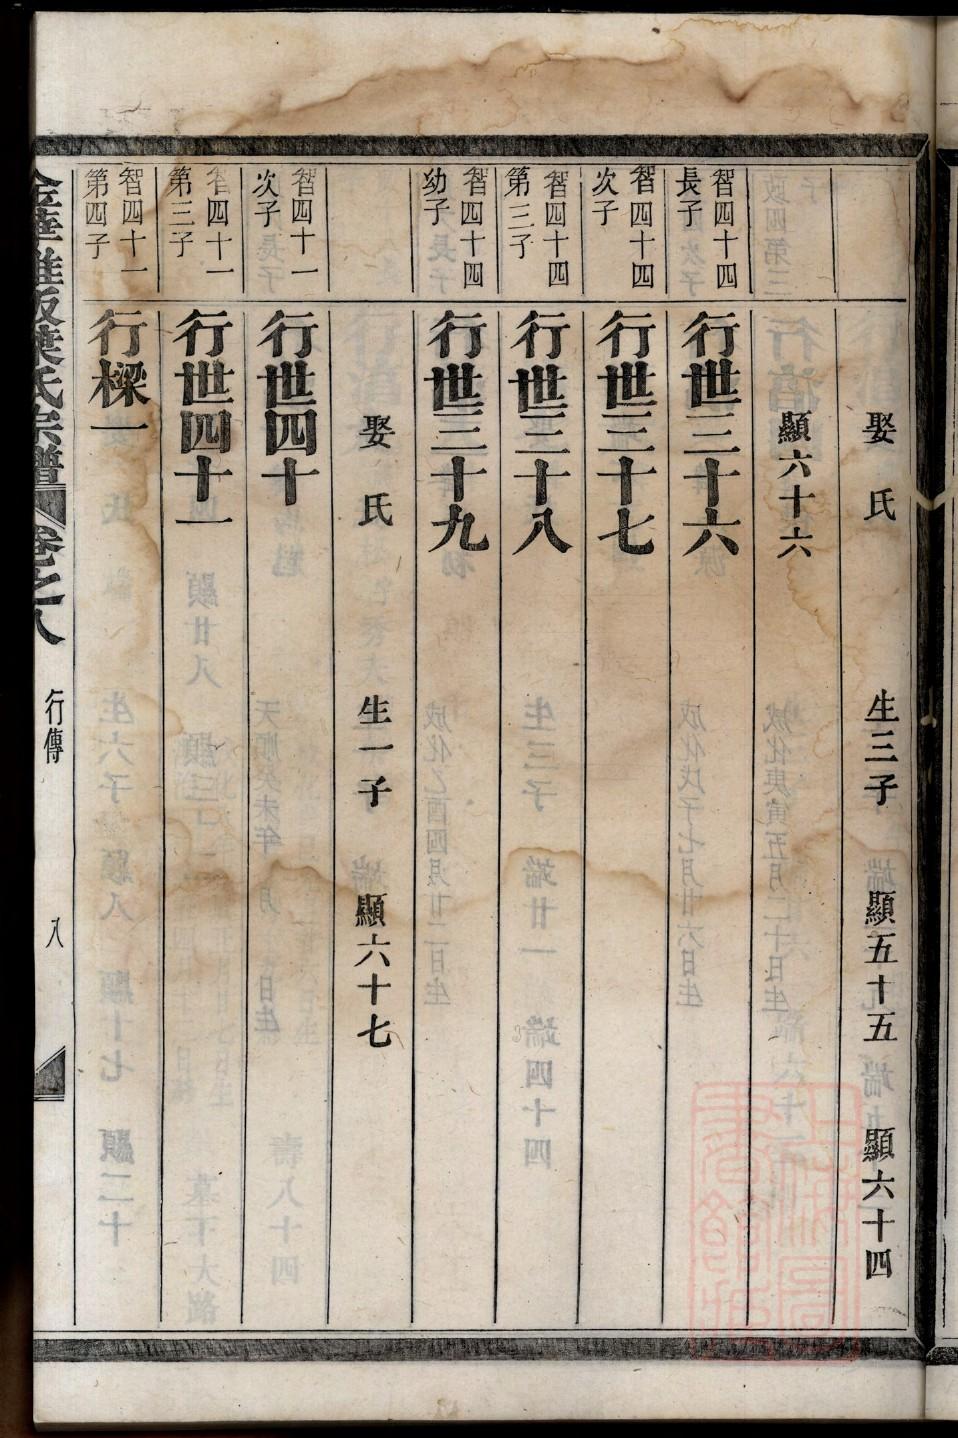 娶 氏 生三子 顯五十五 顯六十四
顯六十六
智四十四長子 行世三十六
智四十四次子 行世三十七
智四十四第三子 行世三十八
智四十四幼子 行世三十九
娶 氏 生一子 顯六十七
智四十一次子 行世四十
智四十一第三子 行世四十一
智四十一第四子 行樑一
葉氏宗譜 卷之八 行傳 八